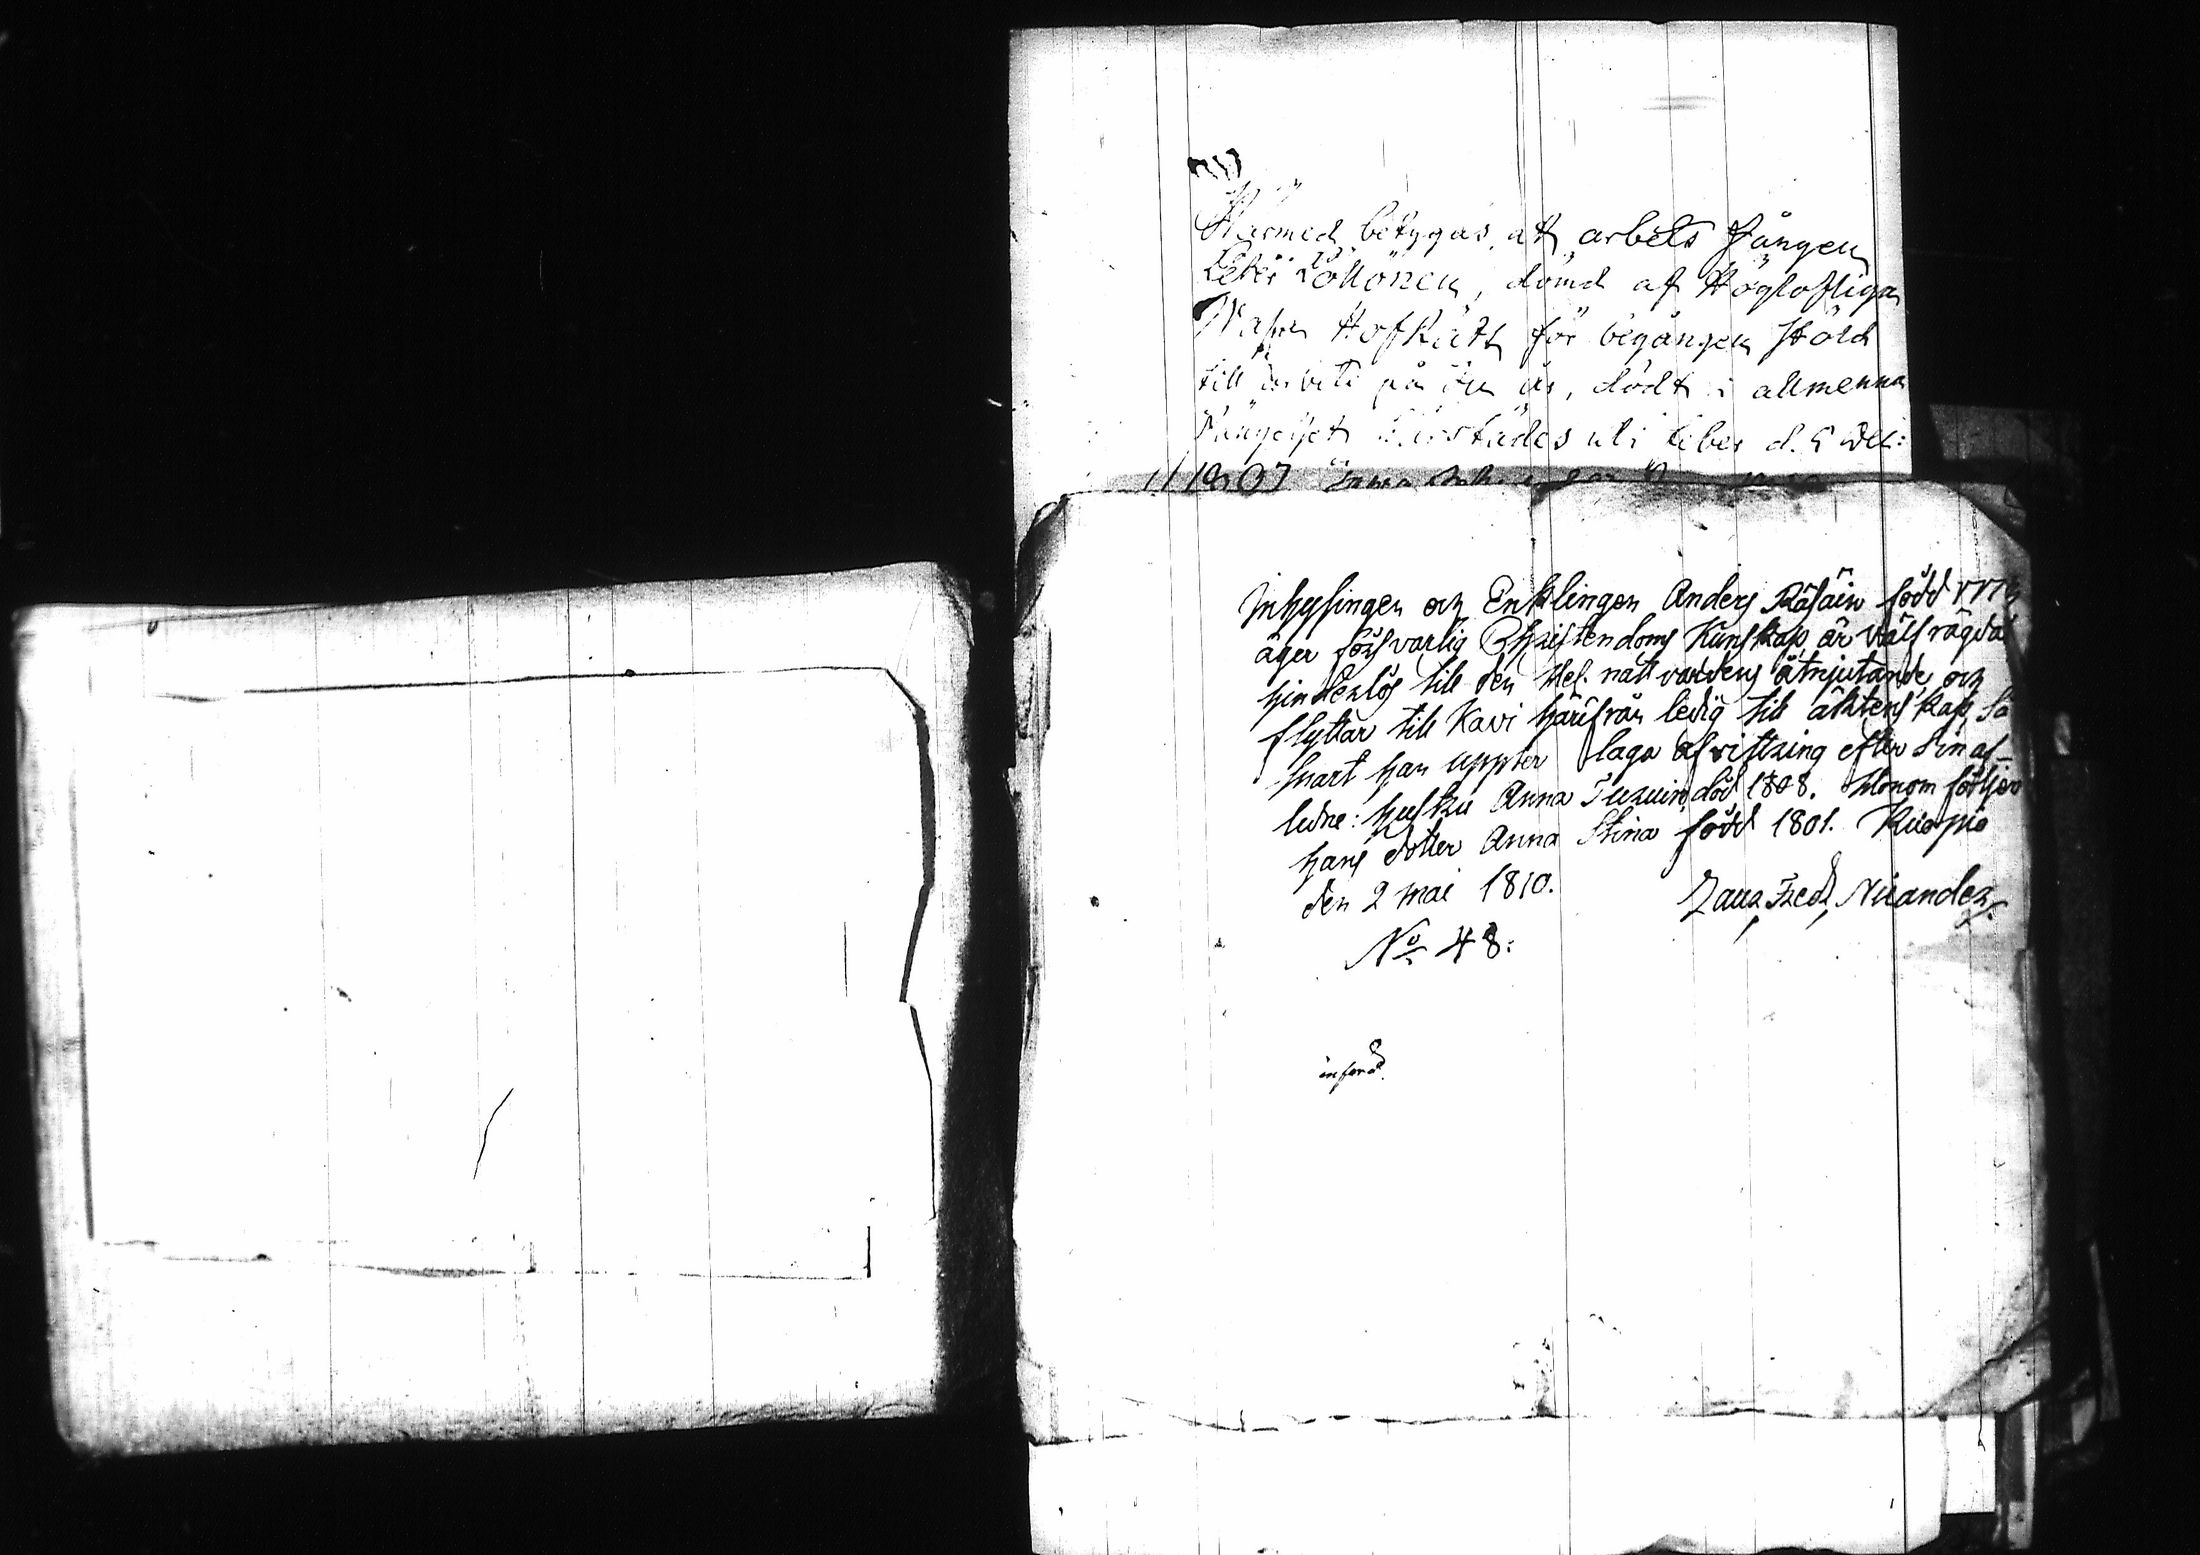 Härmed betygas, at arbets fången
Peter Pöllönen, dömd af Höglofliga
Wasa HofRätt för begången stöld
till arbete på års, dödt i allmenna
Fängelset härstädes uti feber d. 5 Dec:
1807
Inhysingen och Enklingen Anders Räsäin född 177
äger försvarlig Christendoms Kunskap, är välfrägdad
hinderlös till den Hel. nattvardens åtnjutande, och
flyttar till Kavi härifrån ledig till äktenskap, så
snart han uppter laga afvittring efter sin af-
ledne: hustru Anna Turuin, död 1808. Honom följer
hans dotter Anna Stina född 1801. Kuopio
den 2 mai 1810. Laur, Fredr, Nicander.
No 48:
inford